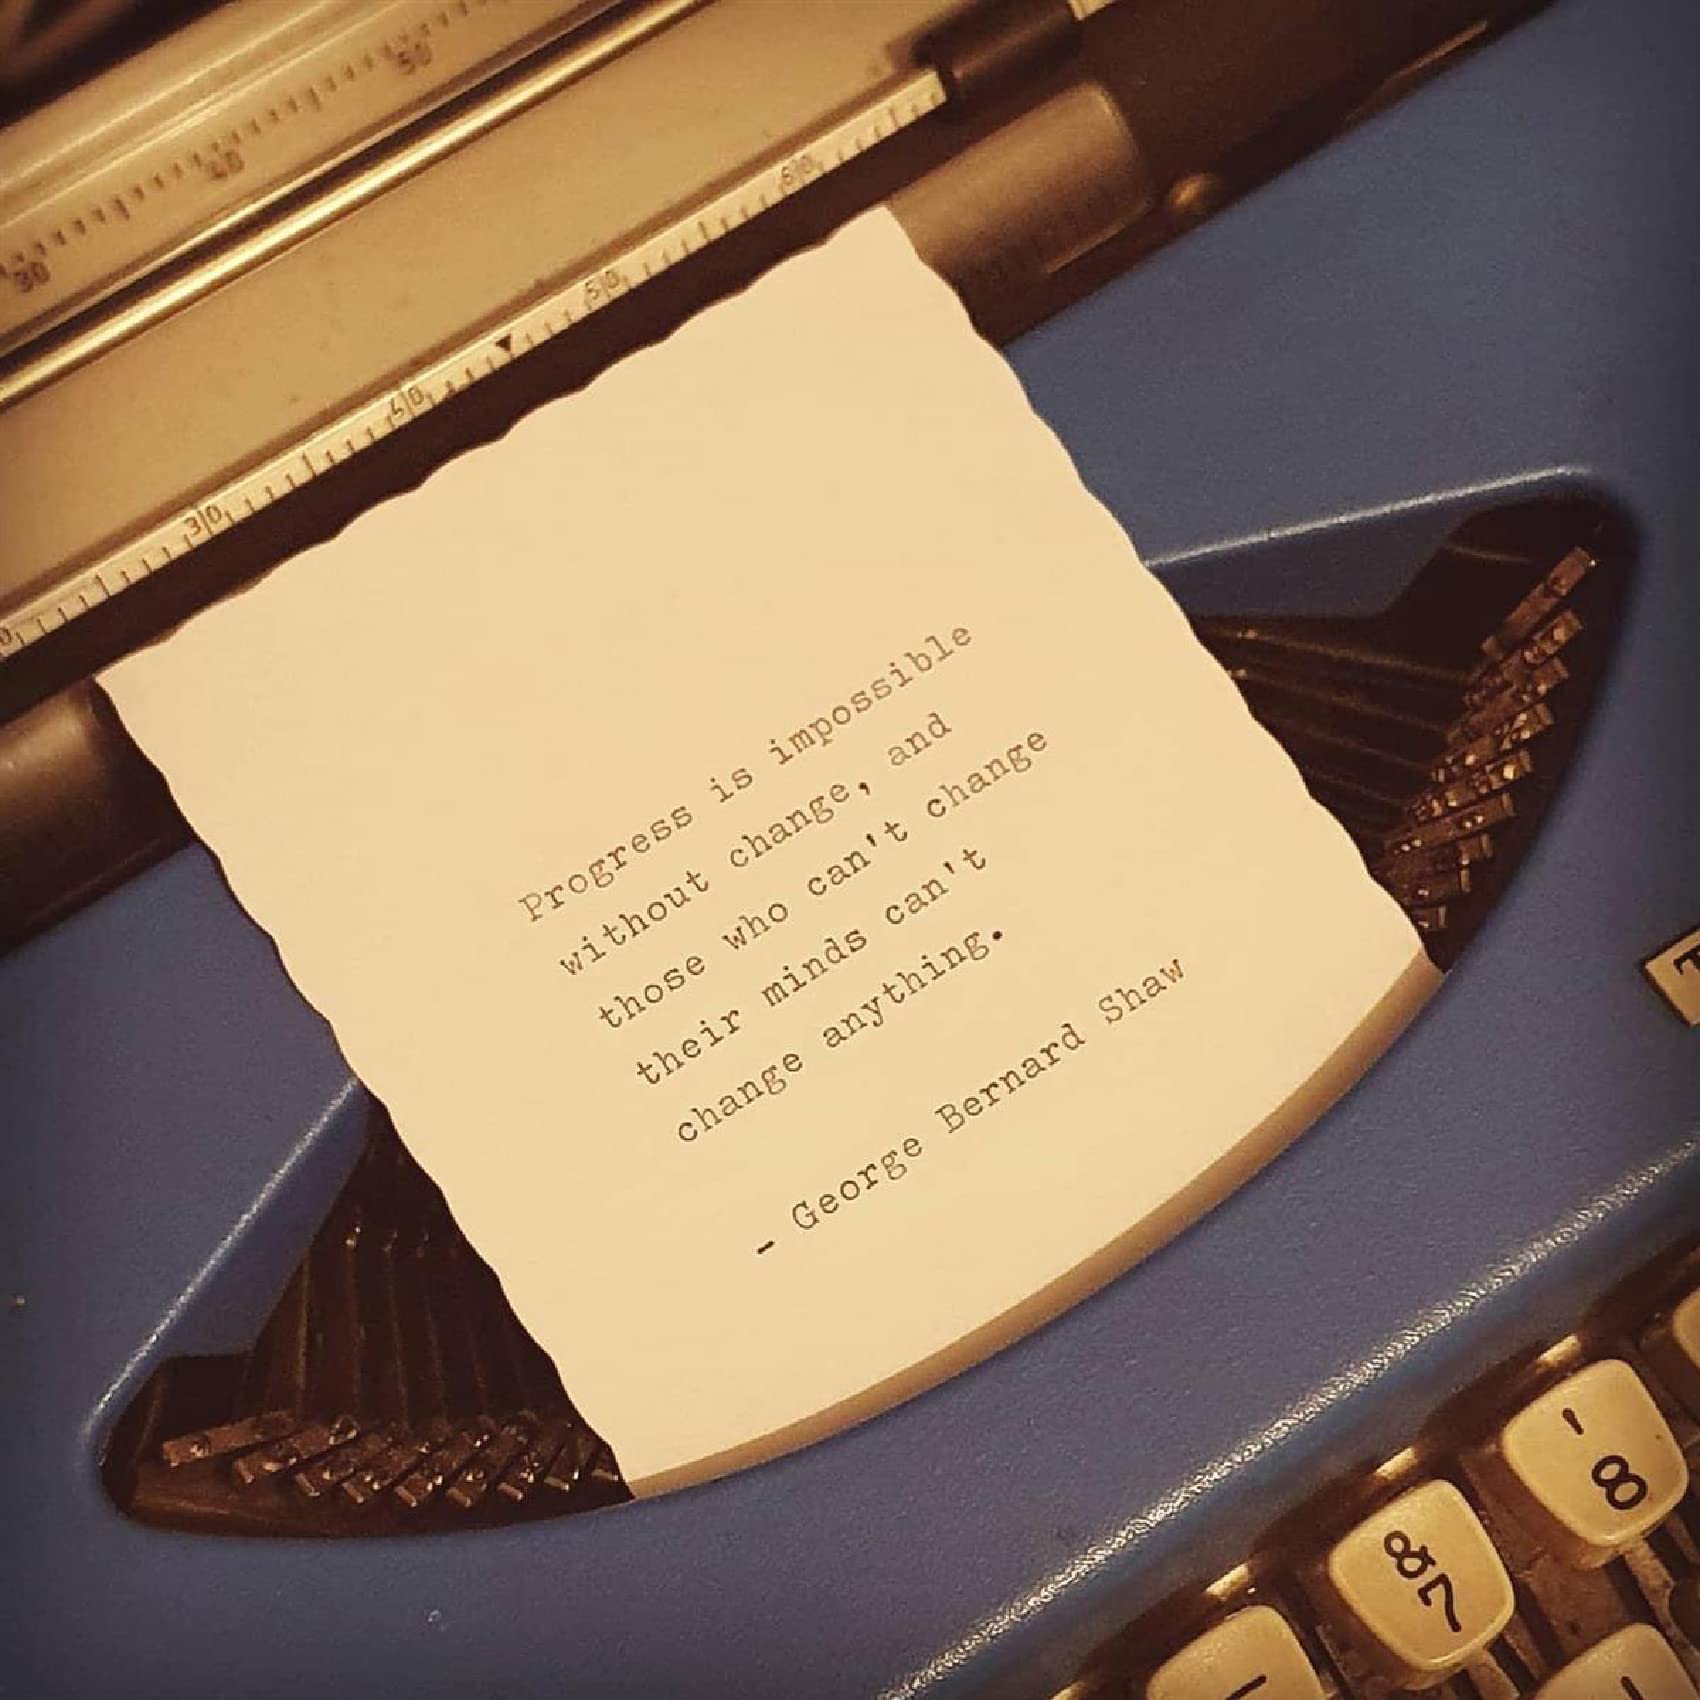 30 40 50
0 30 40 50 60
Progress is impossible
without change, and
those who can't change
their minds can't
change anything.
- George Bernard Shaw
T
' 8
& 7